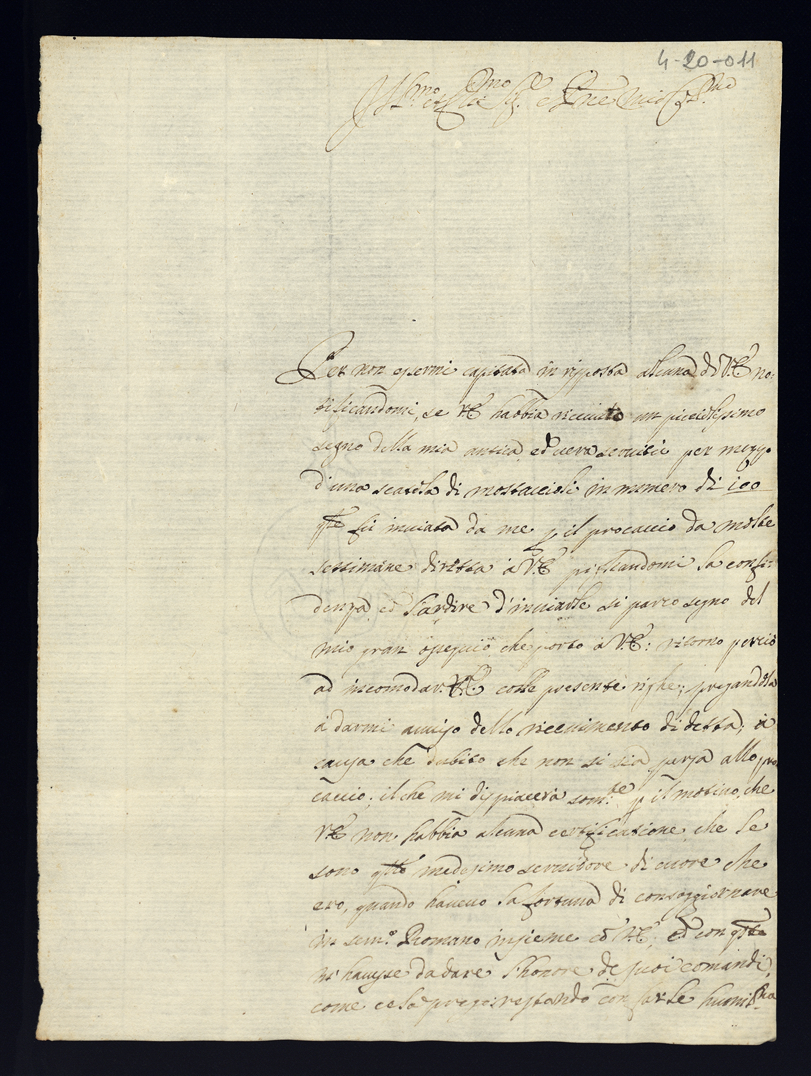 4-20-011
Ill.mo et Ecc.mo Sig.r e P.rone mio Col.mo
Per non essermi capitata in risposta alcuna di V.E. no-
tificandomi, se V.E. habbia riceuuto un picciolissimo
segno della mia antica, ed uera seruitù per mezzo
d'una scatola di mostaccioli in numero di 100
q.le fu inuiata da me p il procaccio da molte
settimane diretta à V.E. pigliandomi la confi-
denza, ed l'ardire d'inuiarle si parco segno del
mio gran ossequio che porto à V.E.: ritorno perciò
ad incomodar V.E. colle presente righe; pregandola
à darmi auuiso dello riceuimento di detta, à
causa che dubito che non si sia persa allo pro
caccio; il che mi dispiacerà som.te p il motiuo, che
V.E. non habbia alcuna certificatione, che le
sono q.llo medesimo seruidore di cuore che
ero, quando haueuo la fortuna di conseggiornare
in sem.o Romano insieme cō V.E.; ed con q.sto
m'hauesse da dare l'honore de suoi comandi,
come ce la prego: restando con farle humil.ma